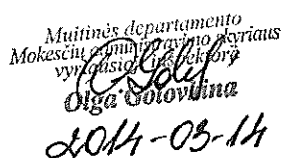 Muitinės departamento
Mokesčių administravimo skyriaus
vyriausioji inspektorė
Olga Golovkina
2014-03-14